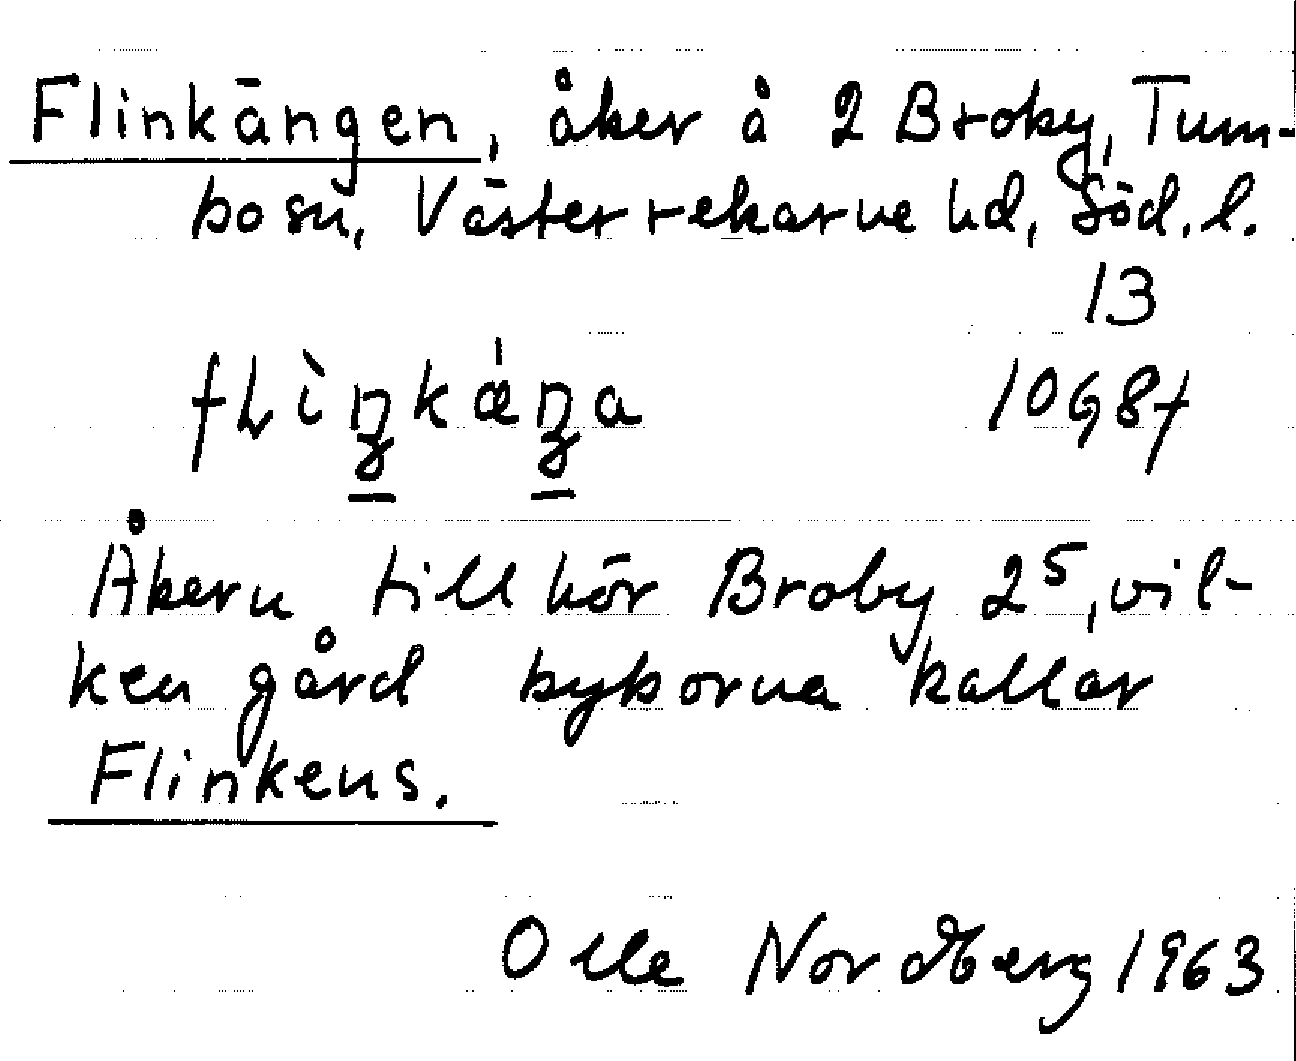 Flinkängen, åker å 2 Broby, Tum-
bo sn, Västerrekarne hd, Söd. l.
13
10G8f
Åkern tillhör Broby 2⁵, vil-
ken gård byborna kallar
Flinkens.
Olle Nordberg 1963